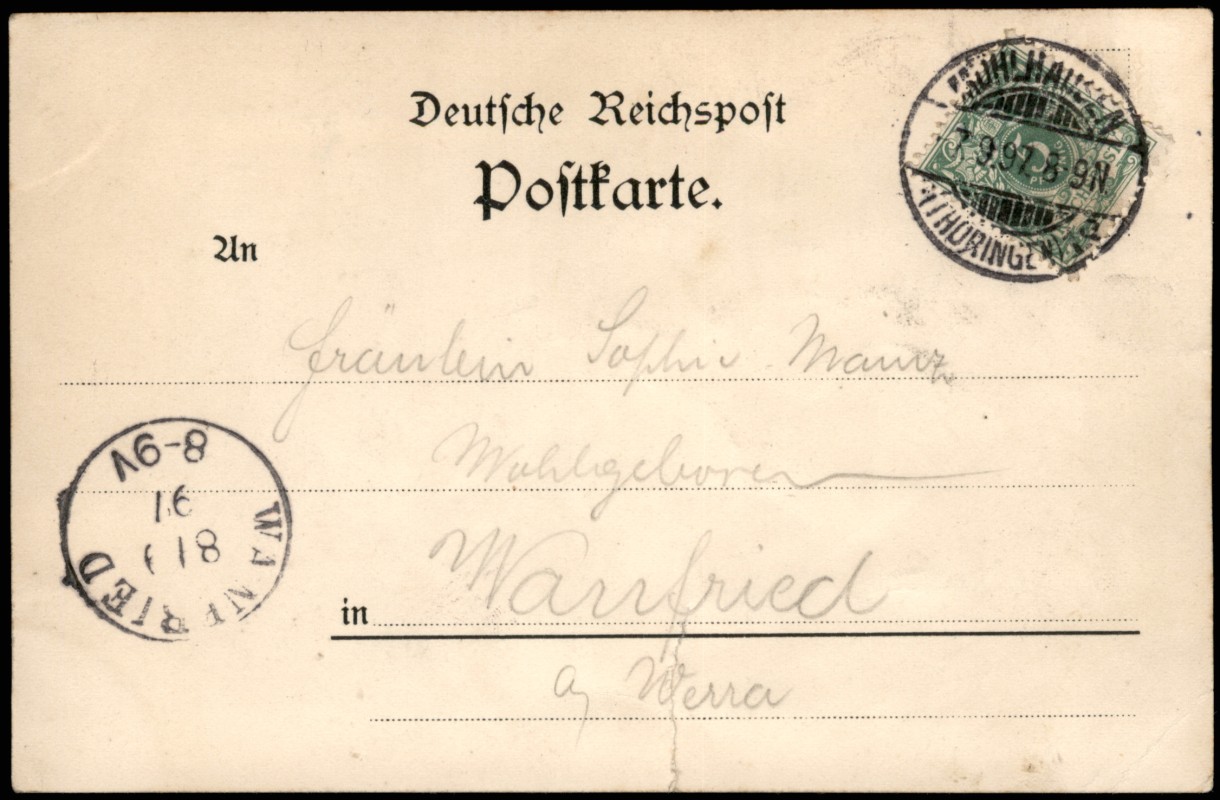 Deutsche Reichspost
Postkarte.
MÜHLHAUSEN
7.9.97. 8-9N.
(THÜRINGEN)
An
Fräulein Sophie
Wohlgeboren
in Wanfried
a/ Werra
WANFRIED
8 9
97
8-9V